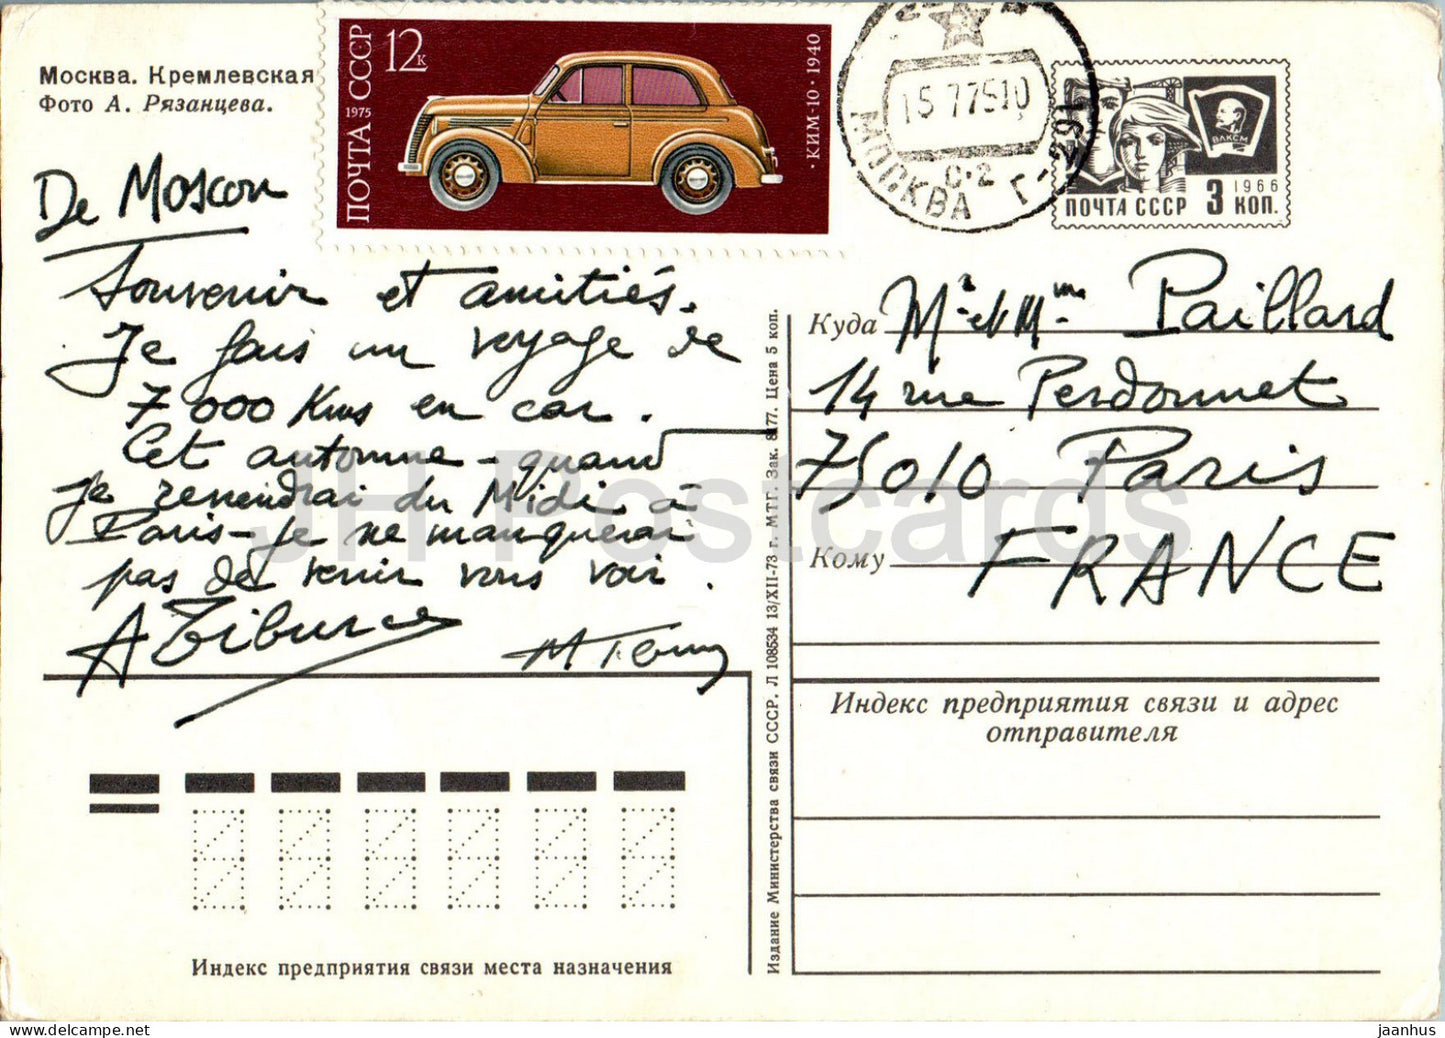 Москва. Кремлевская
Фото А. Рязанцева.
12к
ПОЧТА СССР
1975
·КИМ-10·1940
15 7 75 10
МОСКВА Г-291
С-2
ВЛКСМ
1966
ПОЧТА СССР 3 КОП.
De Moscou
Souvenir et amitiés.
Je fais un voyage de
7000 Kms en car.
Cet automne - quand
je reviendrai du Midi à
Paris - je ne manquerai
pas de venir vous voir.
A Tiburce
Куда Mr et Mme Paillard
14 rue Perdonnet
75010 Paris
Кому FRANCE
Индекс предприятия связи и адрес
отправителя
Издание Министерства связи СССР. Л 108534 13/XII-73 г. МТГ. Зак. 8177. Цена 5 коп.
Индекс предприятия связи места назначения
JH Postcards
jaanhus — Postcards